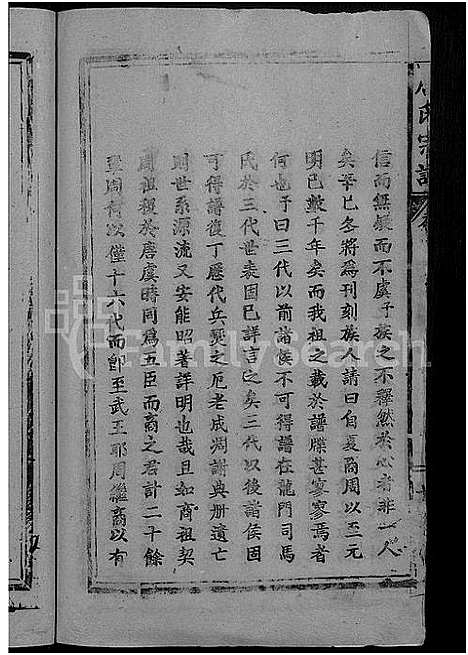 信而無疑而不虞子族之不釋然於心者非一人
矣辛巳冬將為刊刻族人請曰自夏商周以至元
明已數千年矣而我祖之載於譜牒甚寥寥焉者
何也予曰三代以前諸侯不可得譜在龍門司馬
氏於三代世表固已詳言之矣三代以後諸侯固
可得譜復丁歷代兵燹之厄老成凋謝典册遺亡
則世系源流又安能昭著詳明也哉且如商祖契
周祖稷於唐虞時同為五臣而商之君計二十餘
至周何以僅十六代而即至武王耶周繼商以有
氏宗譜
FamilySearch